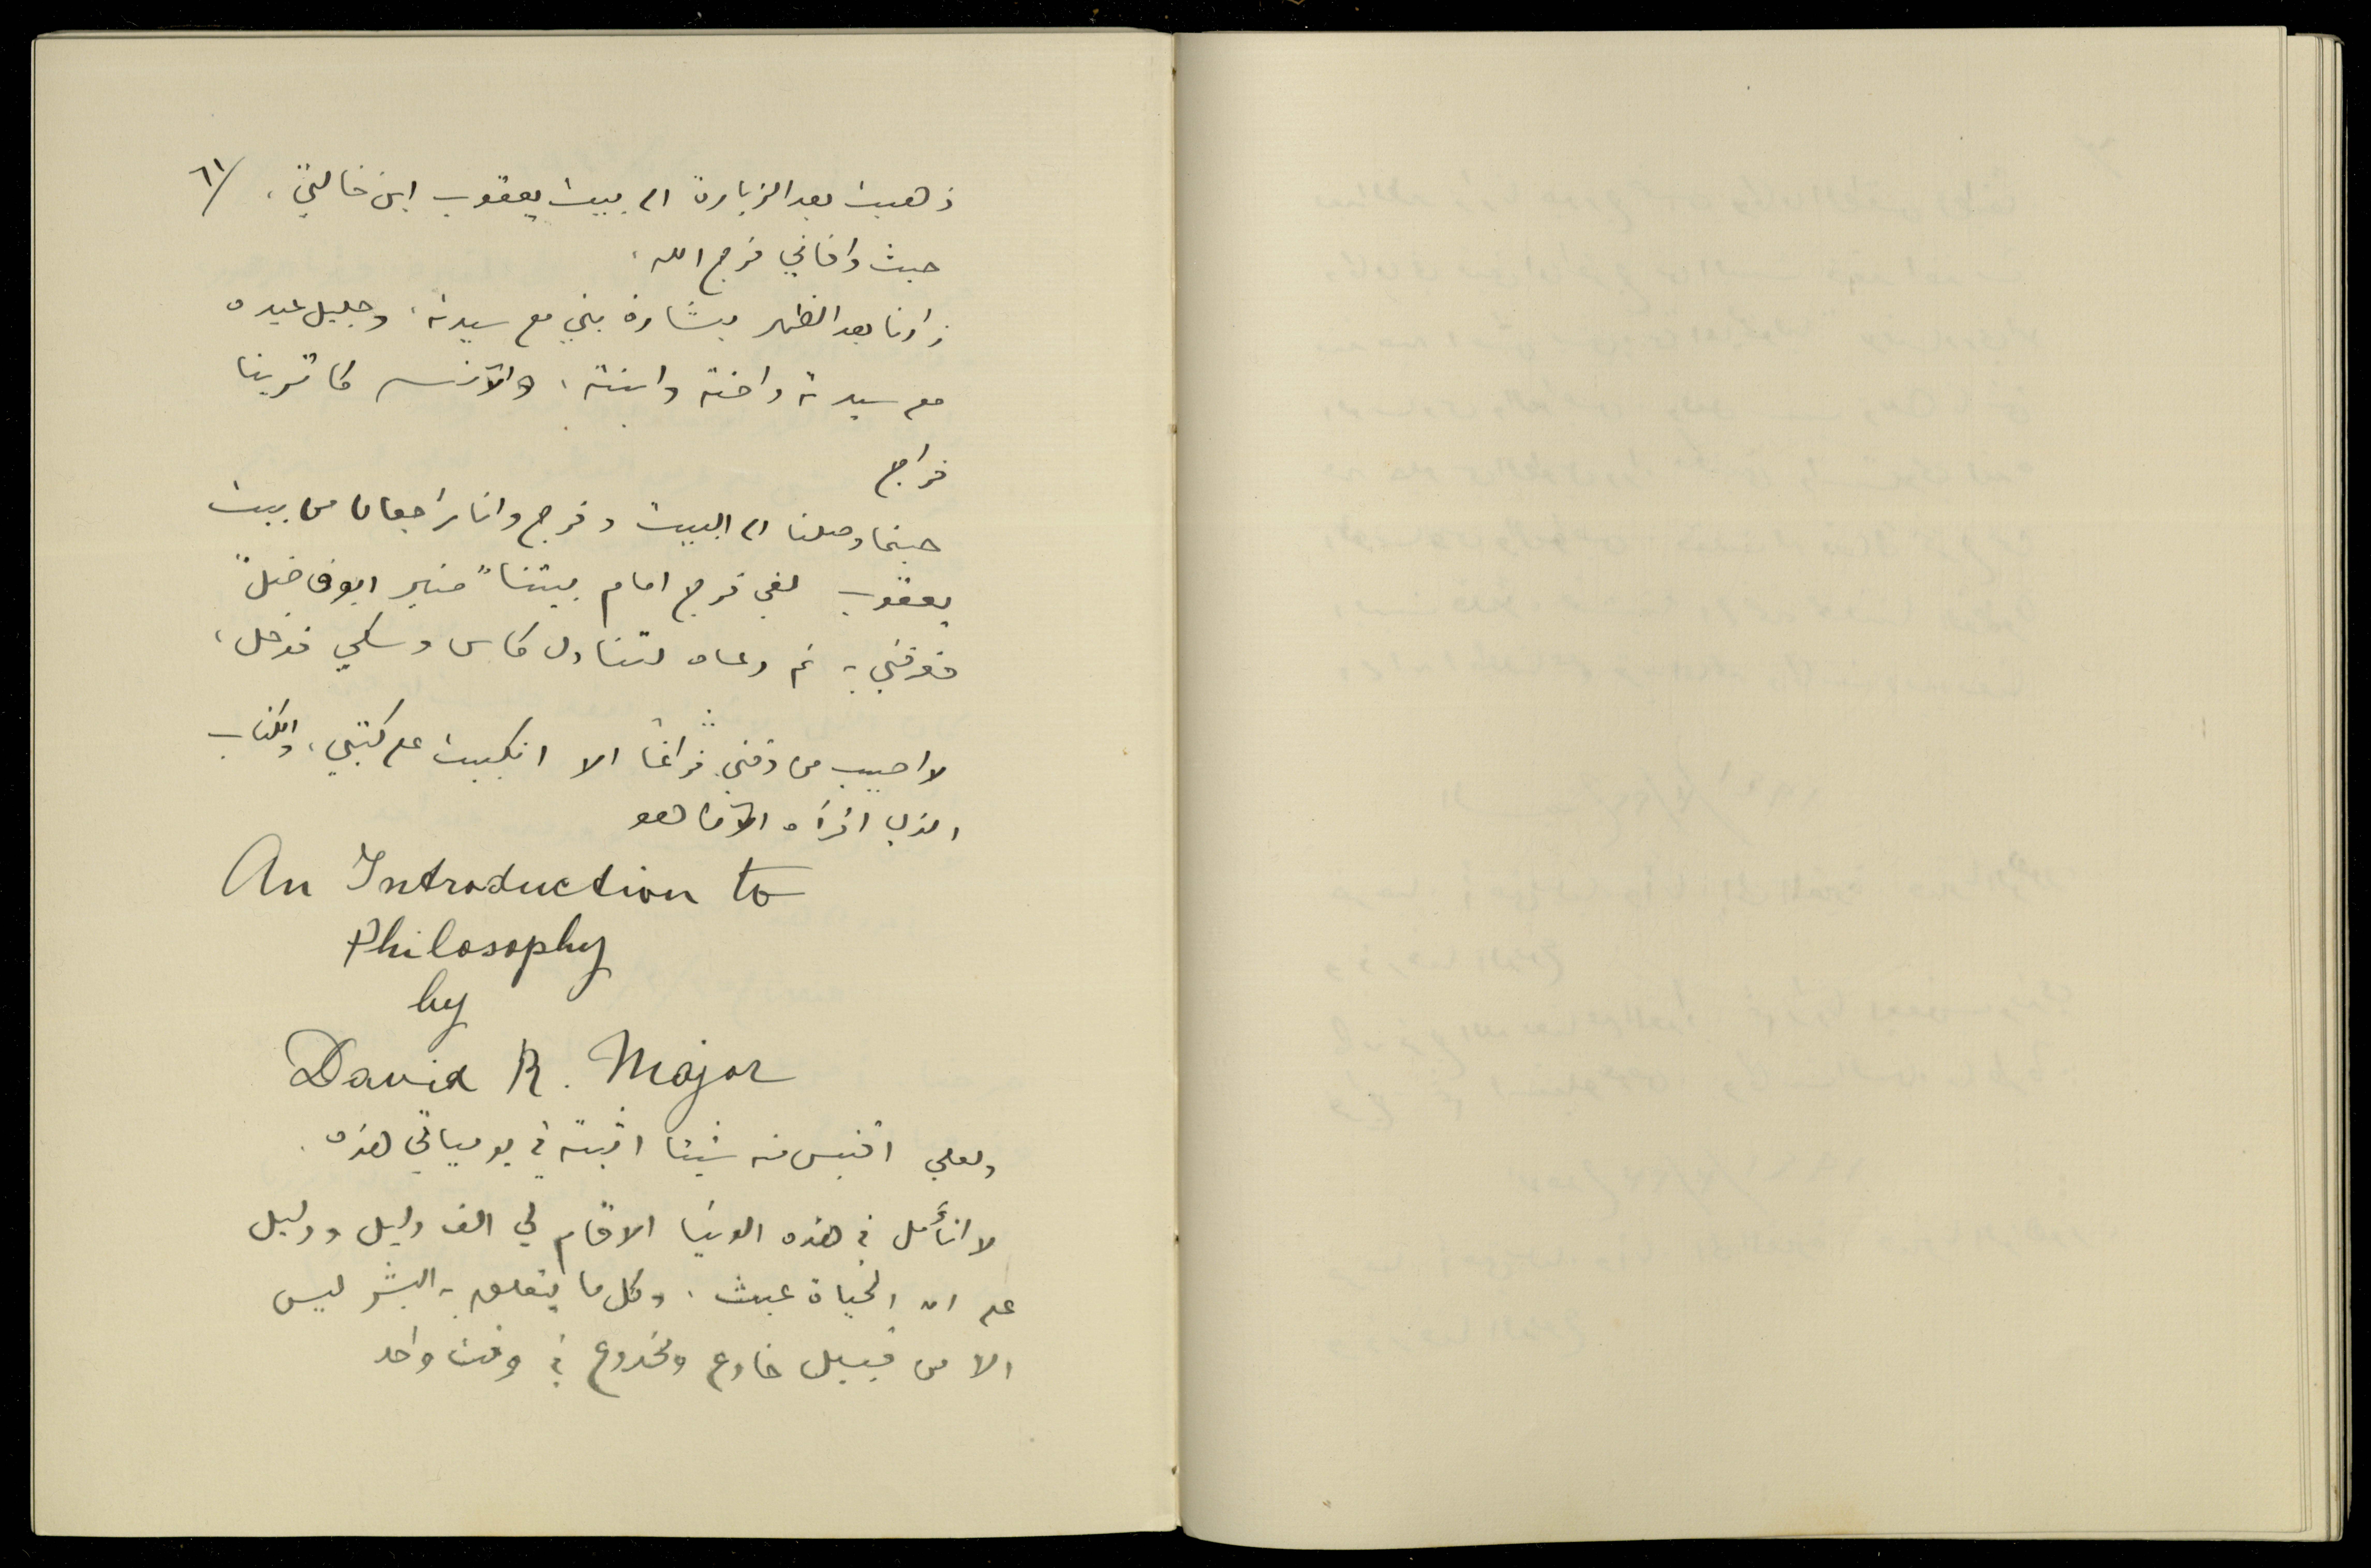 ٦١
ذهبت بعد الزيارة الى بيت يعقوب ابن خالتي،
حيث وافاني فرج الله.
زارنا بعد الظهر بشارة بني مع سيدته، وجليل عيده
مع سيدته واخته وابنته، والآنسه كاترينا
فراج
حينما وصلنا الى البيت وفرج وانا راجعان من بيت
يعقوب لقي فرج امام بيتنا "منير ابو فاضل"
فعرفني به ثم دعاه لتناول كاس وسكي فدخل،
لا اصيب من وقتي فراغاً الا انكببت على كتبي، والكتاب
الذي اقرأه الآن هو
An Introduction to
Philosophy
by
David R. Major
ولعلي اقتبس منه شيئا اثبته في يومياتي هذه.
لا اتأمل في هذه الدنيا الا قام لي الف دليل ودليل
على ان الحياة عبث، وكل ما يتعلق به البشر ليس
الا من قبيل خادع ومخدوع في وقت واحد